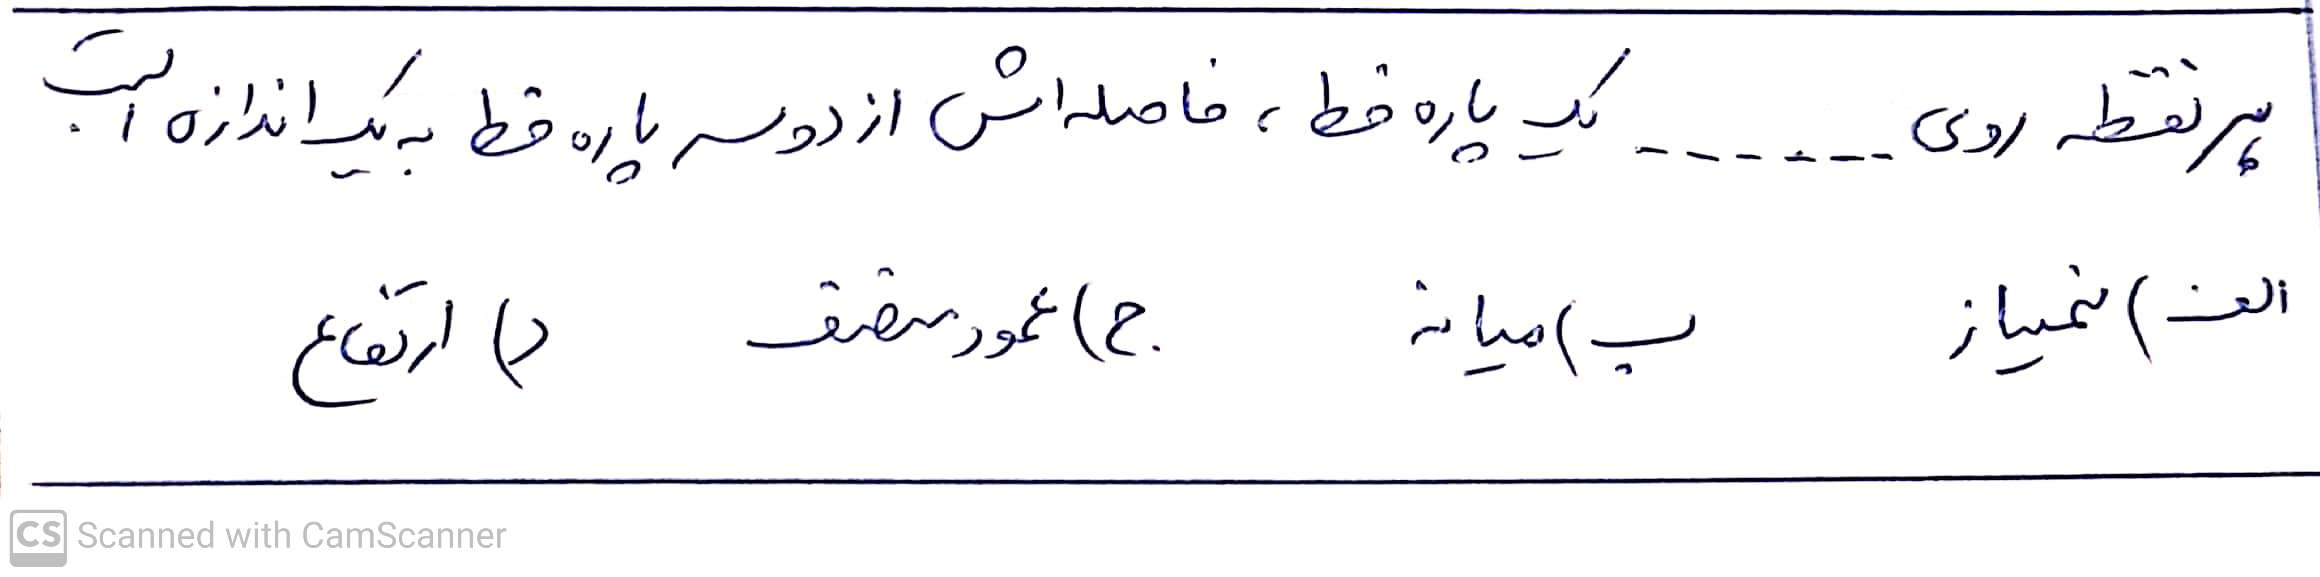 هر نقطه روی ------- یک پاره خط ، فاصله اش از دو سر پاره خط به یک اندازه است .
الف ) نیمساز ب ) میانه ج ) عمود منصف د ) ارتفاع
CS Scanned with CamScanner